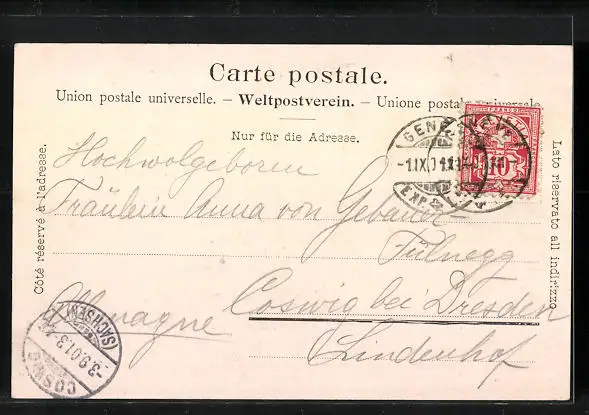 Carte postale.
Union postale universelle. – Weltpostverein. – Unione postale universale
Nur für die Adresse.
Côté réservé à l'adresse.
Lato riservato all indirizzo
FRANCO
10
GENÈVE
-1.IX.01
EXP.
Hochwolgeboren
Fräulein Anna von Gebauer-
Fülnegg
Coswig bei Dresden
Allemagne
Lindenhof
COSWIG
(SACHSEN)
-3.9.01.